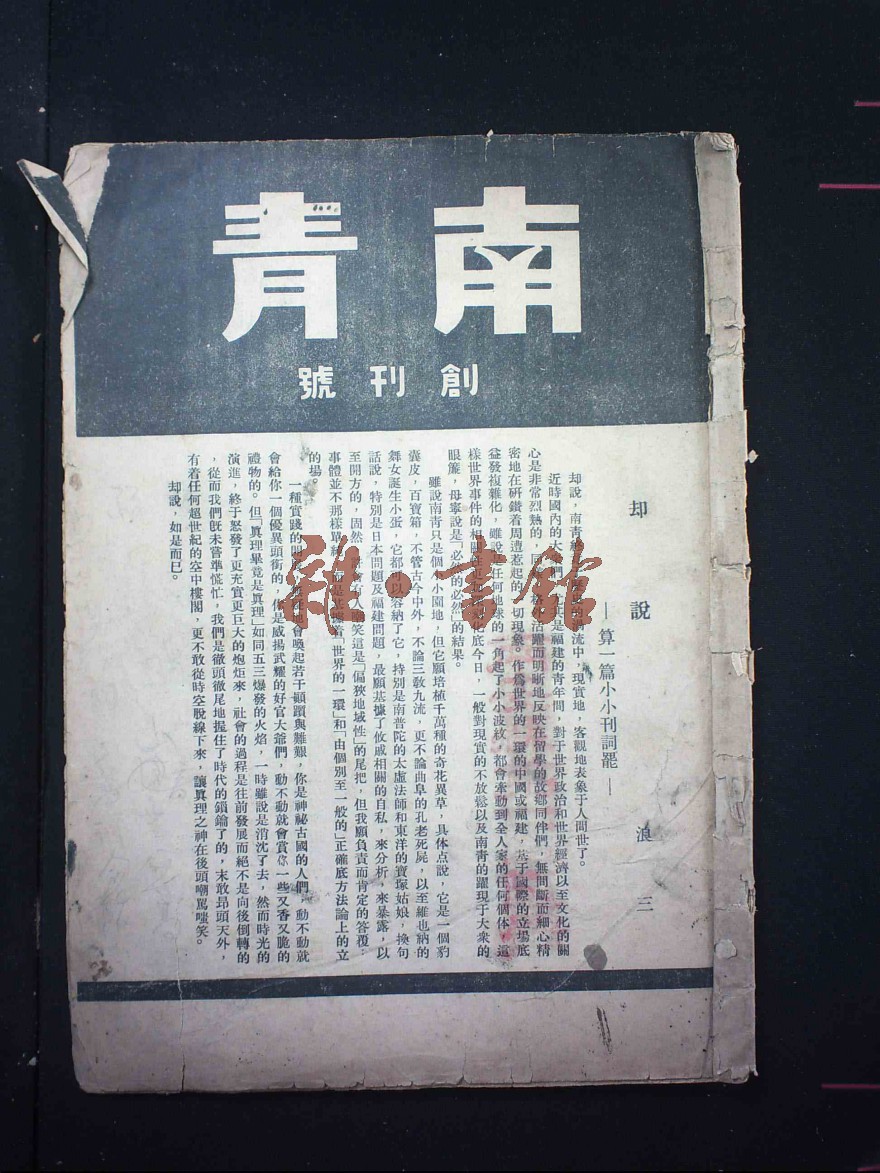 南青
創刊號
却說 浪三
—算一篇小小刊詞罷—
却說,南青終于歷史的潮流中,現實地,客觀地表象于人間世了。
近時國內的大衆,尤其是福建的青年間,對于世界政治和世界經濟以至文化的關
心是非常烈熱的,同時 活躍而明晰地反映在留學的故鄉同伴們,無間斷而細心精
密地在研鑽着周遭惹起的一切現象。作爲世界的一環的中國或福建,基于國際的立場底
益發複雜化,雖說是任何地球的一角起了小小波紋,都會牽動到全人家的任何個体,這
樣世界事件的相關性更 化底今日,一般對現實的不放鬆以及南青的躍現于大衆的
眼簾,毋寧說是「必然的必然」的結果。
雖說南青只是個小小園地,但它願培植千萬種的奇花異草,具体点說,它是一個豹
囊皮,百寶箱,不管古今中外,不論三敎九流,更不論曲阜的孔老死屍,以至維也納的
舞女誕生小蛋,它都可以容納了它,特別是南普陀的太虛法師和東洋的寶塚姑娘,換句
話說,特別是日本問題及福建問題,最願基據了攸戚相關的自私,來分析,來暴露,以
至開方的,固然,許會有人嘲笑這是「偏狹地域性」的尾把,但我願負責而肯定的答覆:
事體並不那樣單純,而是基據着「世界的一環」和「由個別至一般的」正確底方法論上的立
的場。
一種實踐的開 無疑地會喚起若干顧躓與難艱,你是神祕古國的人們,動不動就
會給你一個優異頭銜的,你是威揚武耀的好官大爺們,動不動就會賞你一些又香又脆的
禮物的。但「眞理畢竟是眞理」如同五三爆發的火焰,一時雖說是消沈了去,然而時光的
演進,終于怒發了更充實更巨大的炮炬來,社會的過程是往前發展而絕不是向後倒轉的
,從而我們旣未嘗準慌忙,我們是徹頭徹尾地握住了時代的鎖鑰了的,末敢昂頭天外,
有着任何超世紀的空中樓閣,更不敢從時空脫線下來,讓眞理之神在後頭嘲罵嗤笑。
却說,如是而巳。
雜·書館